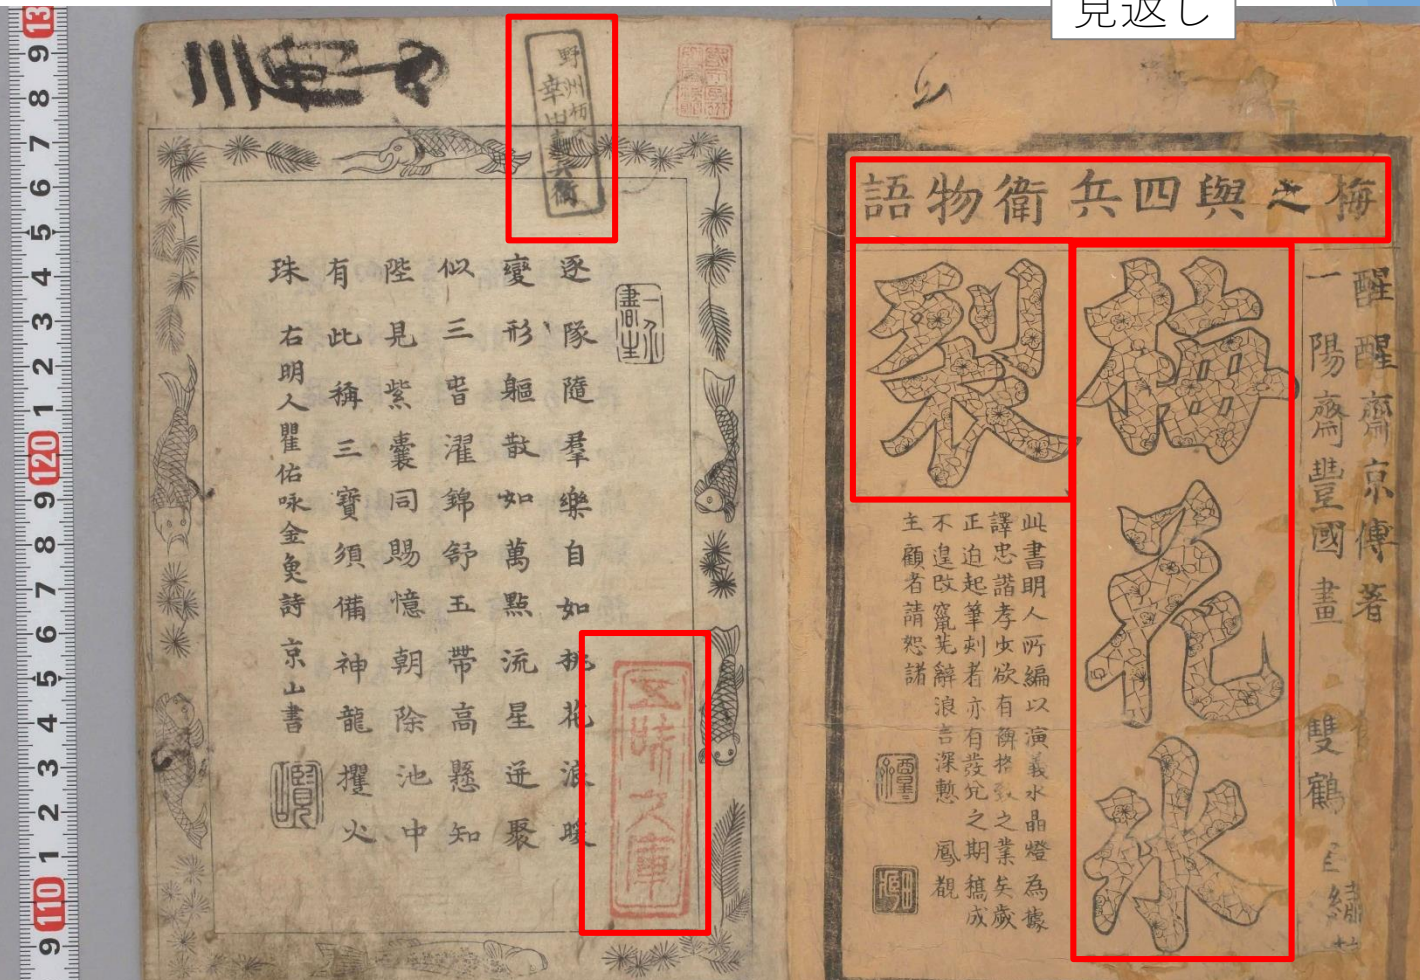 見返し
梅之與四兵衛物語
醒醒齋京傳著
一陽齋豐國畫
雙鶴
梅花氷
裂
此書明人所編以演義水晶燈為據
譯忠諧孝虫欲有
之業矣歲
正迫起筆刻者亦有發兌之期稿成
不遑改竄荒辭浪言深慙
鳳觀
主顧者請恕諸
野州
幸山
兵衛
逐隊隨羣樂自如桃花浪暖
變形軀散如萬點流星迸聚
似三峕濯錦舒玉帶高懸知
陛見紫囊同賜憶朝除池中
有此稱三寶須備神龍攫火
珠
右明人瞿佑咏金魚詩
京山書
五味文庫
13
9
8
7
6
5
4
3
2
1
120
9
8
7
6
5
4
3
2
1
110
9